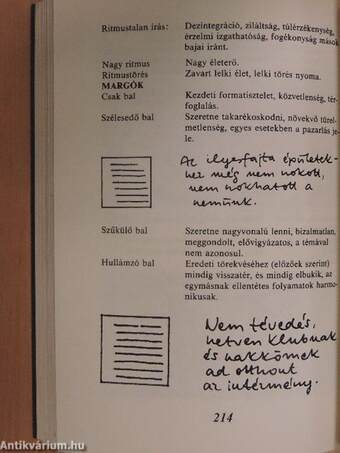 Ritmustalan írás: Dezintegráció, ziláltság, túlérzékenység,
érzelmi izgathatóság, fogékonyság mások
bajai iránt.
Nagy ritmus Nagy életerő.
Ritmustörés Zavart lelki élet, lelki törés nyoma.
MARGÓK
Csak bal Kezdeti formatisztelet, közvetlenség, tér-
foglalás.
Szélesedő bal Szeretne takarékoskodni, növekvő türel-
metlenség, egyes esetekben a pazarlás je-
le.
Az ilyesfajta épületek-
hez még nem szokott,
nem szokhatott a
nemünk.
Szűkülő bal Szeretne nagyvonalú lenni, bizalmatlan,
meggondolt, elővigyázatos, a témával
nem azonosul.
Hullámzó bal Eredeti törekvéséhez (előzőek szerint)
mindig visszatér, és mindig elbukik, az
egymásnak ellentétes folyamatok harmo-
nikusak.
Nem tévedés,
hetven klubnak
és szakkörnek
ad otthont
az intézmény.
214
Antikvárium.hu